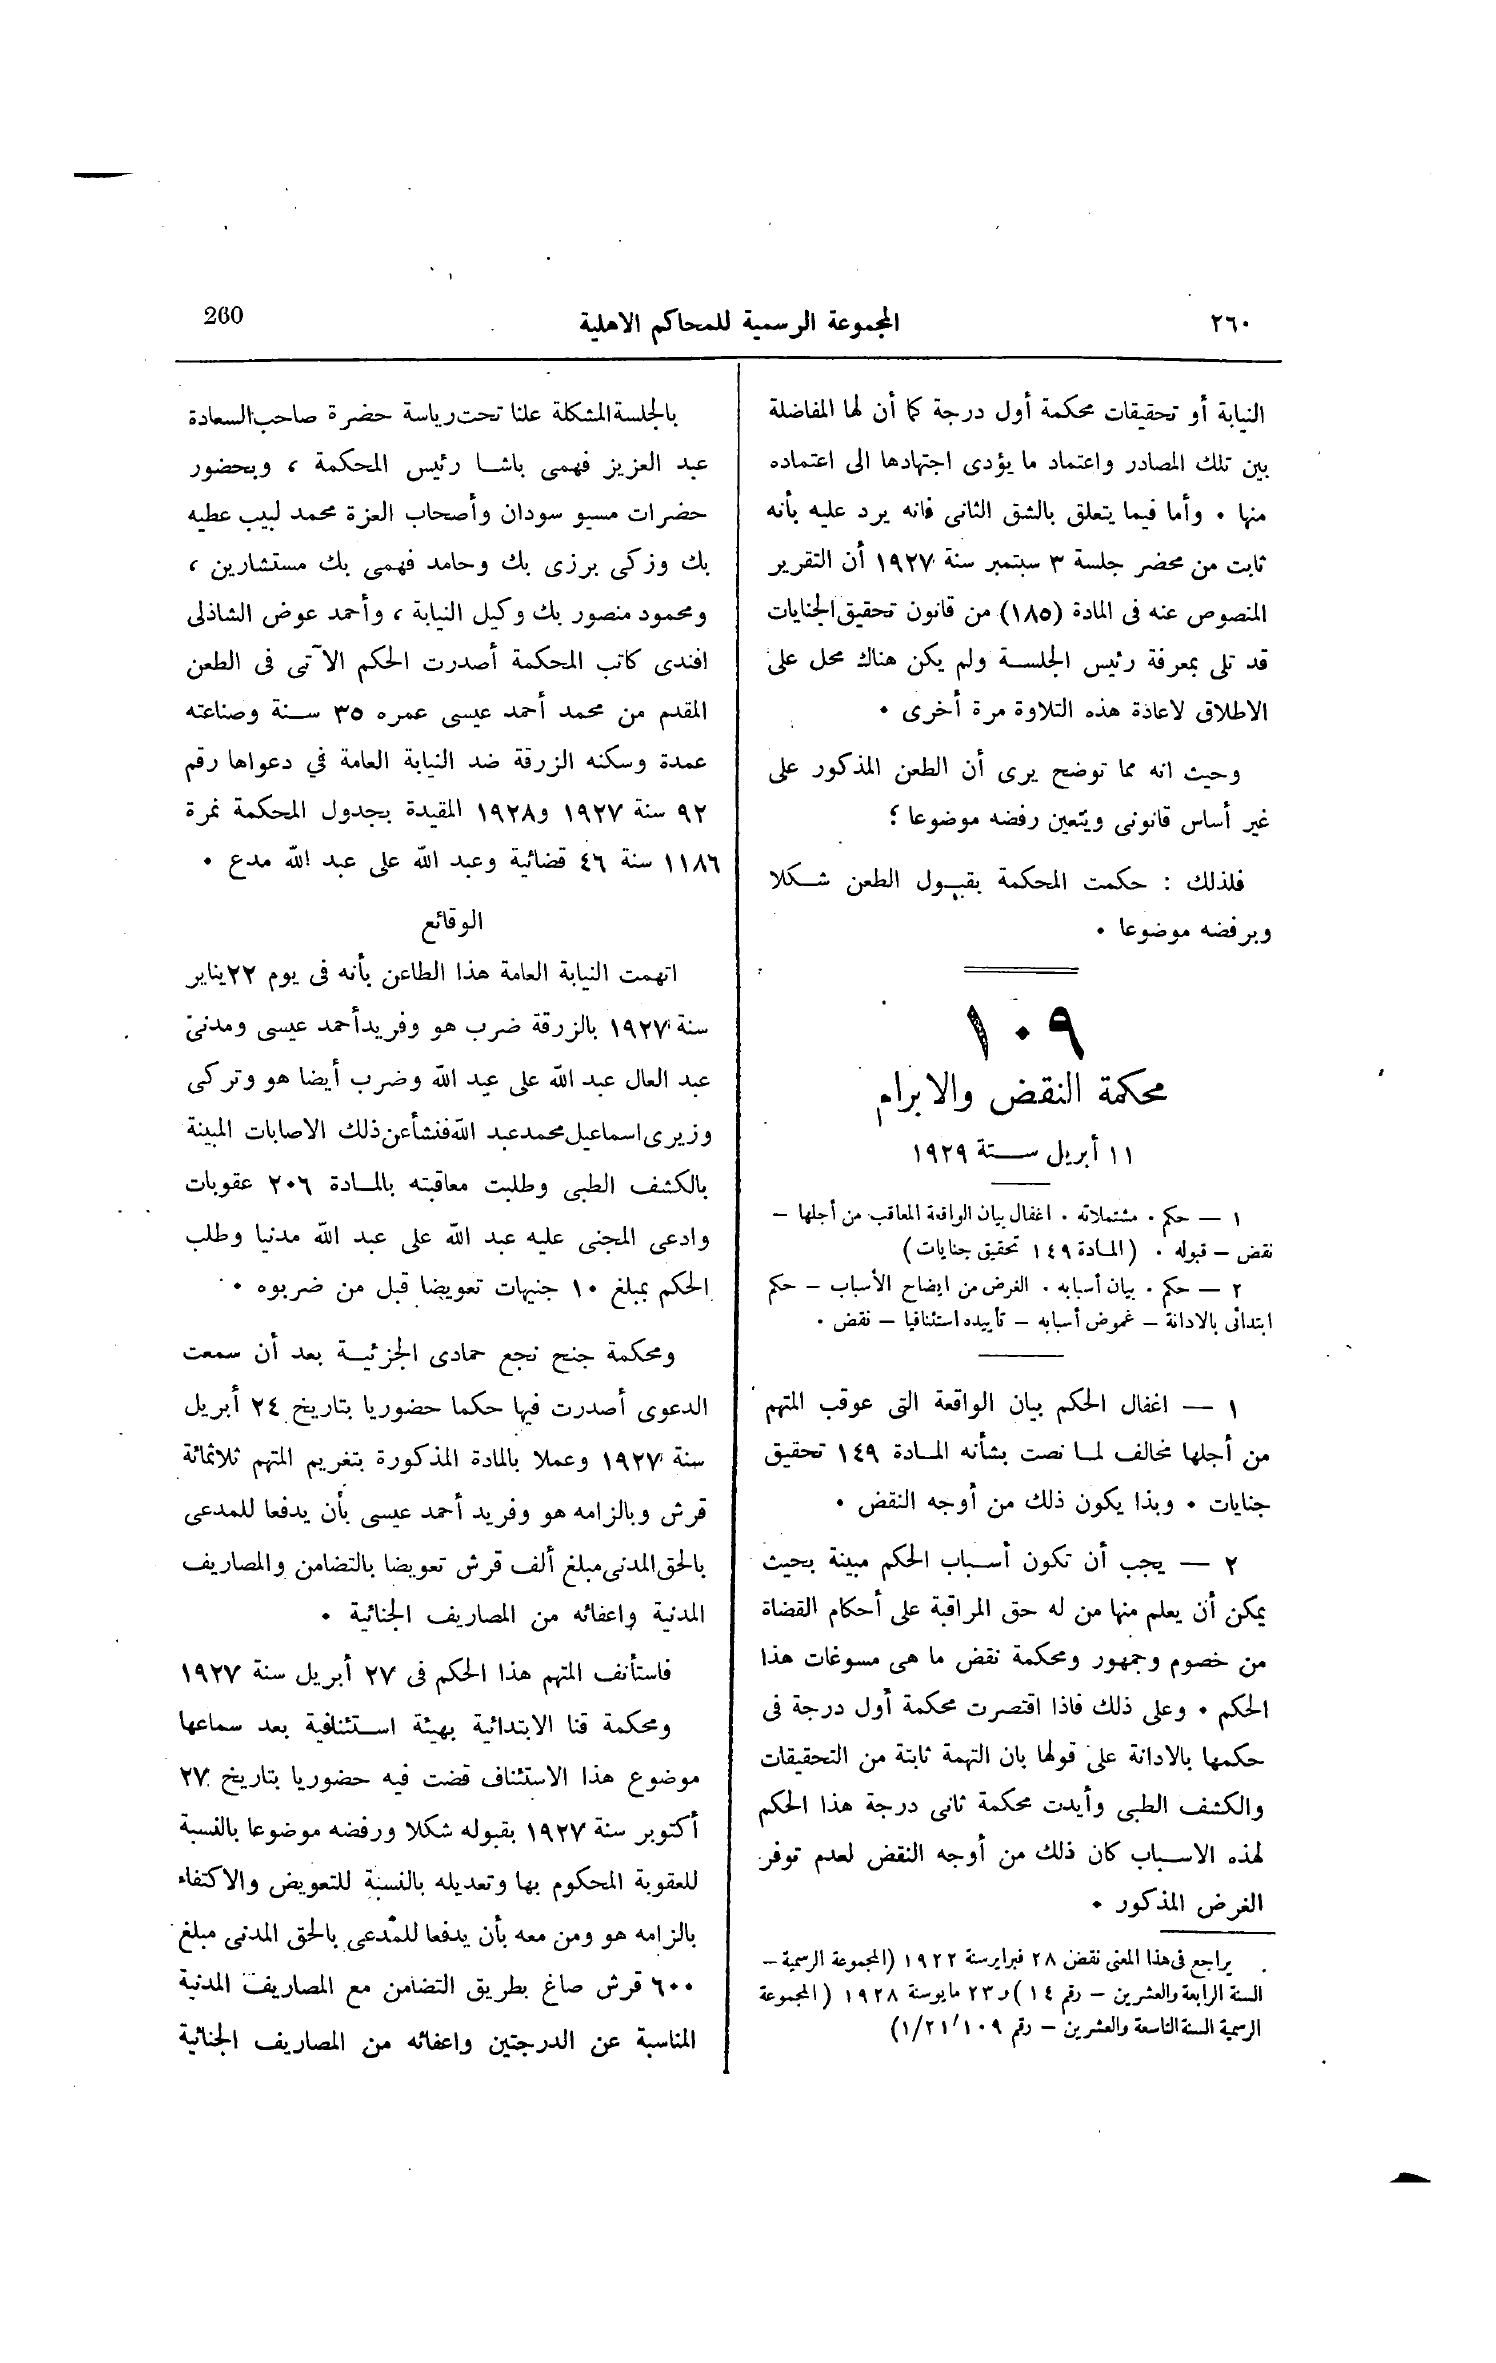 ٢٦٠
المجموعة الرسمية للمحاكم الاهلية
260
النيابة أو تحقيقات محكمة أول درجة كما أن لها المفاضلة
بين تلك المصادر واعتماد ما يؤدى اجتهادها الى اعتماده
منها . وأما فيما يتعلق بالشق الثانى فانه يرد عليه بأنه
ثابت من محضر جلسة ٣ سبتمبر سنة ١٩٢٧ أن التقرير
المنصوص عنه فى المادة (١٨٥) من قانون تحقيق الجنايات
قد تلى بمعرفة رئيس الجلسة ولم يكن هناك محل على
الاطلاق لاعادة هذه التلاوة مرة أخرى .
وحيث انه مما توضح يرى أن الطعن المذكور على
غير أساس قانونى ويتعين رفضه موضوعا ؛
فلذلك : حكمت المحكمة بقبول الطعن شكلا
وبرفضه موضوعا .
١٠٩
محكمة النقض والابرام
١١ أبريل سنة ١٩٢٩
١ — حكم . مشتملاته . اغفال بيان الواقعة المعاقب من أجلها —
نقض — قبوله . (المادة ١٤٩ تحقيق جنايات)
٢ — حكم . بيان أسبابه . الغرض من ايضاح الأسباب — حكم
ابتدائى بالادانة — غموض أسبابه — تأييده استئنافيا — نقض .
١ — اغفال الحكم بيان الواقعة التى عوقب المتهم
من أجلها مخالف لما نصت بشأنه المادة ١٤٩ تحقيق
جنايات . وبذا يكون ذلك من أوجه النقض .
٢ — يجب أن تكون أسباب الحكم مبينة بحيث
يمكن أن يعلم منها من له حق المراقبة على أحكام القضاة
من خصوم وجمهور ومحكمة نقض ما هى مسوغات هذا
الحكم . وعلى ذلك فاذا اقتصرت محكمة أول درجة فى
حكمها بالادانة على قولها بان التهمة ثابتة من التحقيقات
والكشف الطبى وأيدت محكمة ثانى درجة هذا الحكم
لهذه الاسباب كان ذلك من أوجه النقض لعدم توفر
الغرض المذكور .
يراجع فى هذا المعنى نقض ٢٨ فبراير سنة ١٩٢٢ (المجموعة الرسمية —
السنة الرابعة والعشرين — رقم ١٤) و ٢٣ مايو سنة ١٩٢٨ (المجموعة
الرسمية السنة التاسعة والعشرين — رقم ١/٢١/١٠٩)
بالجلسة المشكلة علنا تحت رياسة حضرة صاحب السعادة
عبد العزيز فهمى باشا رئيس المحكمة ، وبحضور
حضرات مسيو سودان وأصحاب العزة محمد لبيب عطيه
بك وزكى برزى بك وحامد فهمى بك مستشارين ،
ومحمود منصور بك وكيل النيابة ، وأحمد عوض الشاذلى
افندى كاتب المحكمة أصدرت الحكم الآتى فى الطعن
المقدم من محمد أحمد عيسى عمره ٣٥ سنة وصناعته
عمدة وسكنه الزرقة ضد النيابة العامة في دعواها رقم
٩٢ سنة ١٩٢٧ و١٩٢٨ المقيدة بجدول المحكمة نمرة
١١٨٦ سنة ٤٦ قضائية وعبد الله على عبد الله مدع .
الوقائع
اتهمت النيابة العامة هذا الطاعن بأنه فى يوم ٢٢ يناير
سنة ١٩٢٧ بالزرقة ضرب هو وفريد أحمد عيسى ومدنى
عبد العال عبد الله على عبد الله وضرب أيضا هو وتركى
وزيرى اسماعيل محمد عبد الله فنشأ عن ذلك الاصابات المبينة
بالكشف الطبى وطلبت معاقبته بالمادة ٢٠٦ عقوبات
وادعى المجنى عليه عبد الله على عبد الله مدنيا وطلب
الحكم بمبلغ ١٠ جنيهات تعويضا قبل من ضربوه .
ومحكمة جنح نجع حمادى الجزئية بعد أن سمعت
الدعوى أصدرت فيها حكما حضوريا بتاريخ ٢٤ أبريل
سنة ١٩٢٧ وعملا بالمادة المذكورة بتغريم المتهم ثلاثمائة
قرش وبالزامه هو وفريد أحمد عيسى بأن يدفعا للمدعى
بالحق المدنى مبلغ ألف قرش تعويضا بالتضامن والمصاريف
المدنية واعفائه من المصاريف الجنائية .
فاستأنف المتهم هذا الحكم فى ٢٧ أبريل سنة ١٩٢٧
ومحكمة قنا الابتدائية بهيئة استئنافية بعد سماعها
موضوع هذا الاستئناف قضت فيه حضوريا بتاريخ ٢٧
أكتوبر سنة ١٩٢٧ بقبوله شكلا ورفضه موضوعا بالنسبة
للعقوبة المحكوم بها وتعديله بالنسبة للتعويض والاكتفاء
بالزامه هو ومن معه بأن يدفعا للمدعى بالحق المدنى مبلغ
٦٠٠ قرش صاغ بطريق التضامن مع المصاريف المدنية
المناسبة عن الدرجتين واعفائه من المصاريف الجنائية